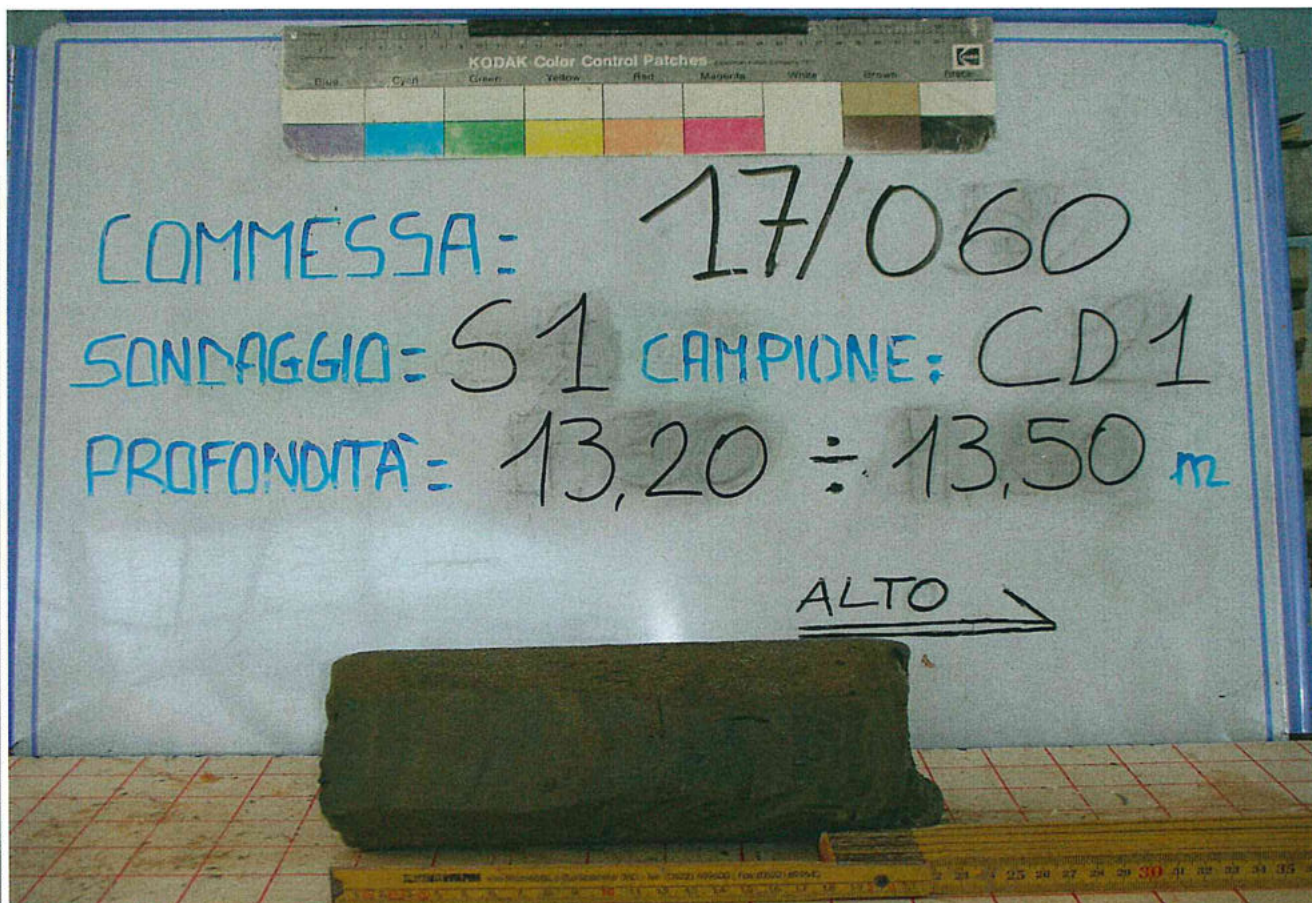 KODAK Color Control Patches
Blue Cyan Green Yellow Red Magenta White Brown Black
COMMESSA= 17/060
SONDAGGIO= S1 CAMPIONE: CD1
PROFONDITÀ= 13,20 ÷ 13,50 m
ALTO
25 26 27 28 29 30 31 32 33 34 35